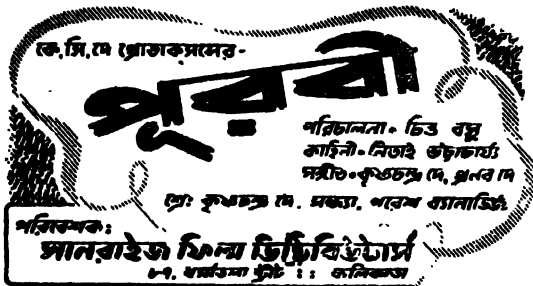 কে, সি, দে প্রোডাকসন্সের -
পূরবী
পরিচালনা • চিত্ত বসু
কাহিনী • নিতাই ভট্টাচার্য্য
সঙ্গীত • কৃষ্ণচন্দ্র দে, প্রনব দে
শ্রে: কৃষ্ণচন্দ্র দে, সন্ধ্যা, পরেশ ব্যানার্জি
পরিবেশক:
সানরাইজ ফিল্ম ডিষ্ট্রিবিউটার্স
৮৭, ধর্মতলা ষ্ট্রীট :: কলিকাতা